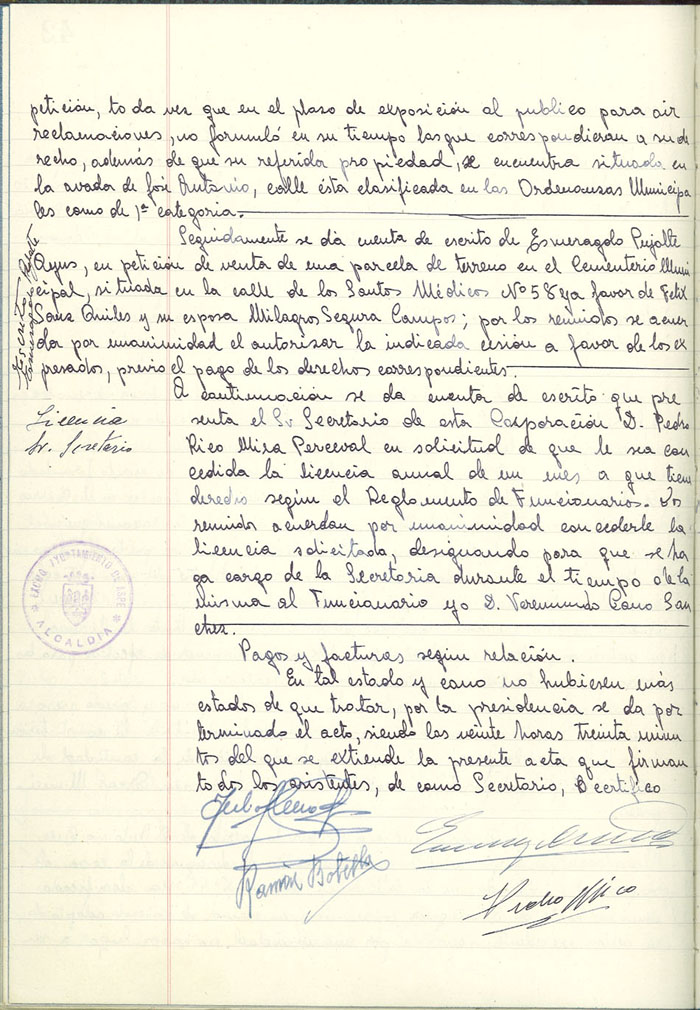 petición, toda vez que en el plaso de exposición al publico para oir
reclamaciones, no formuló en su tiempo las que correspondieran a su de
recho, además de que su referida propiedad, se encuentra situada en
la avada de José Antonio, calle ésta clasificada en las Ordenanzas Municipa
les como de 1ª categoria.
Seguidamente se dá cuenta de escrito de Esmeragdo Pujalte
Ayus, en petición de venta de una parcela de terreno en el Cementerio Muni
cipal, situada en la calle de los Santos Médicos Nº 58 y a favor de Felix
Sanz Quiles y su esposa Milagros Segura Campos; por los reunidos se acuer
da por unanimidad el autorizar la indicada cesión a favor de los ex
presados, previo el pago de los derechos correspondientes.
Escrito
Esmeragdo Pujalte
A continuación se da cuenta de escrito que pre
senta el Sr Secretario de esta Corporación D. Pedro
Rico Mira Perceval en solicitud de que le sea con
cedida la licencia anual de un mes a que tiene
derecho según el Reglamento de Funcionarios. Los
reunidos acuerdan por unanimidad concederle la
licencia solicitada, designando para que se ha
ga cargo de la Secretaria durante el tiempo de la
misma al Funcionario D. Veremundo Cano San
chez.
Licencia
Sr. Secretario
EXCMO. AYUNTAMIENTO DE ASPE
ALCALDIA
Pagos y facturas según relación.
En tal estado y como no hubiesen más
estados de que tratar, por la presidencia se da por
terminado el acto, siendo las veinte horas treinta minu
tos del que se extiende la presente acta que firman
todos los asistentes, de como Secretario, certifico
Ramón Botella
Pedro Rico